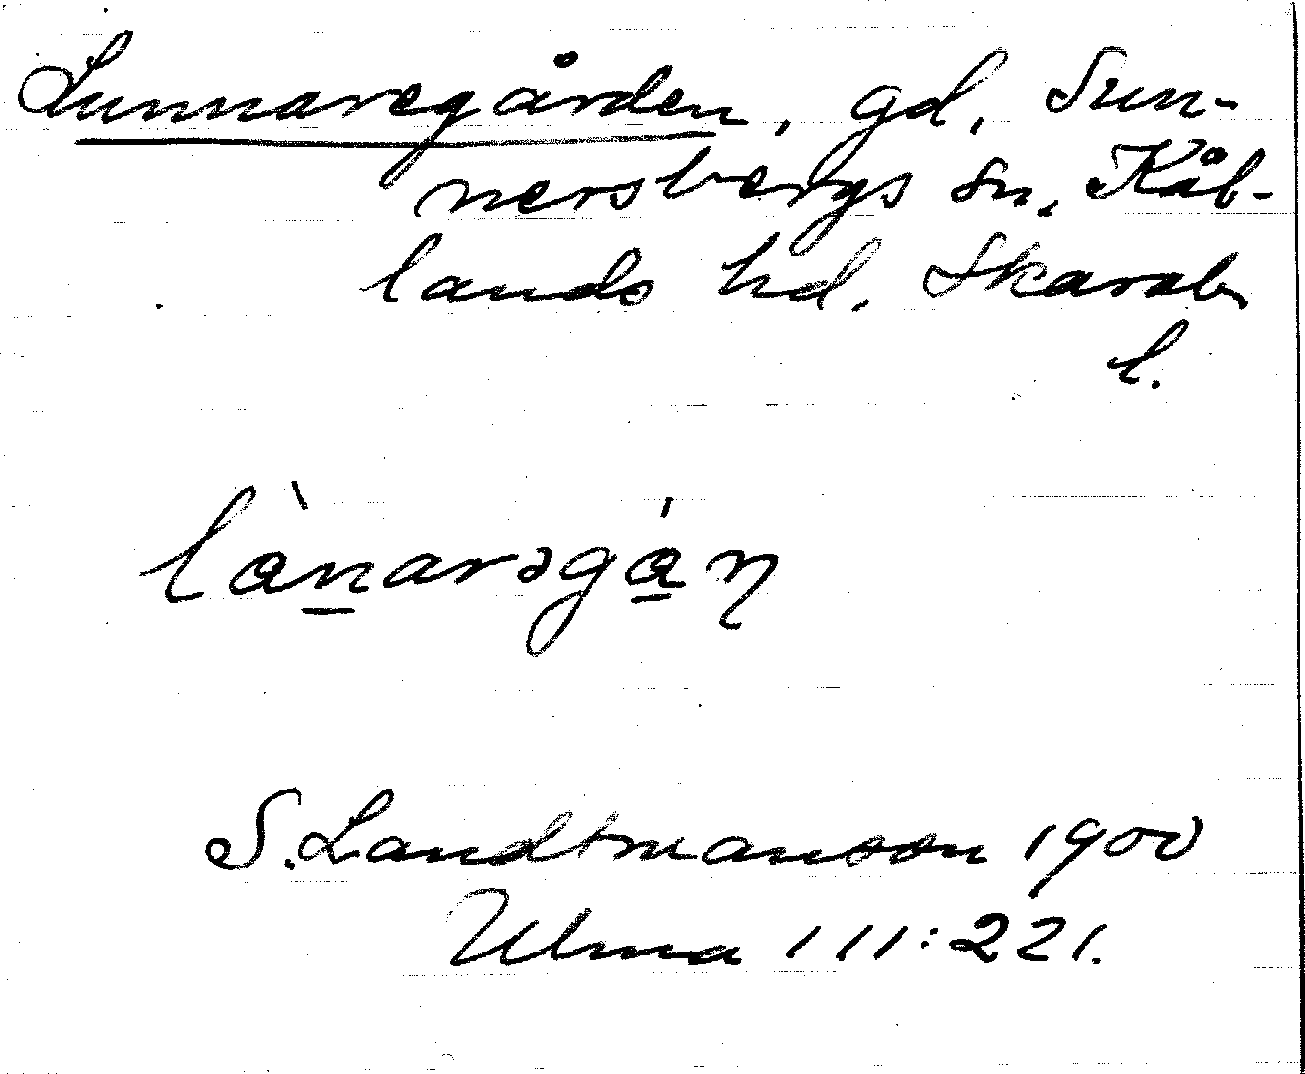 Lunnaregården, gd, Sun-
nersbergs sn, Kål-
lands hd. Skarab
l.
lànarəgá̱ɳ
S. Landtmanson 1900
Ulma 111:221.